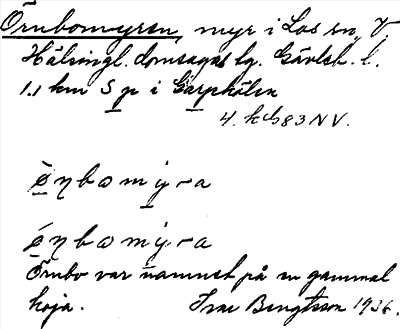 Örnbomyren, myr i Los sn, V.
Hälsingl. domsagas tg. Gävleb. l.
1.1 km S p i Garphålen
4. kb 83 NV.
ø̀ŋbomýra
ǿŋbomýra
Örnbo var namnet på en gammal
koja. Ivar Bengtsson 1936.